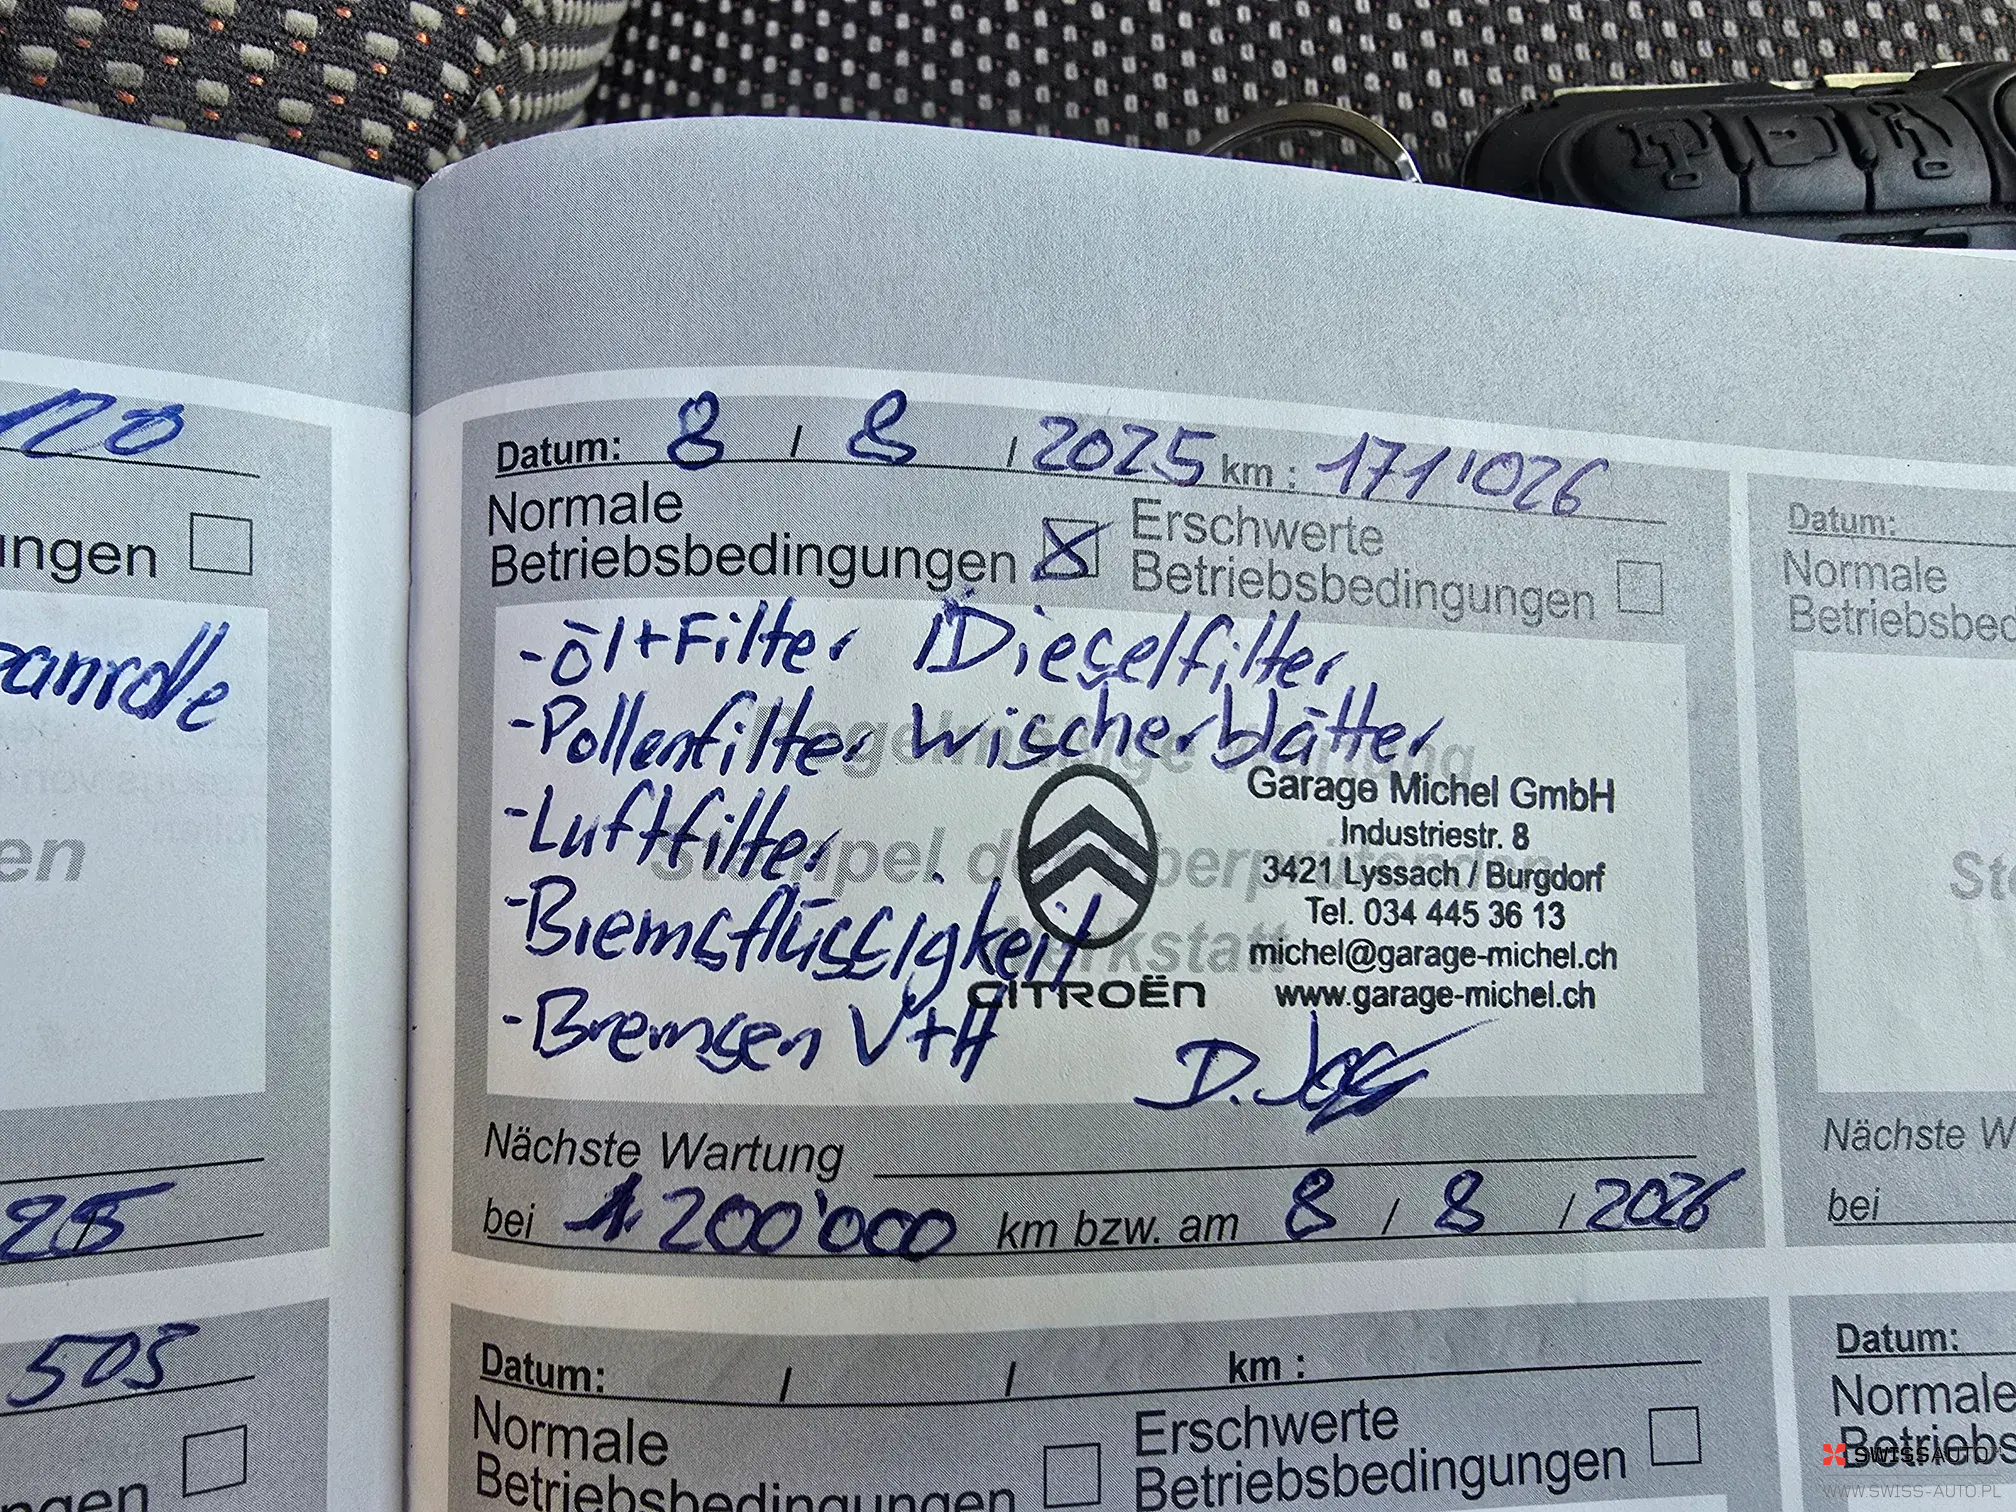 120
ungen
anrolle
en
25
503
ngen
Datum: 8 / 8 / 2025 km : 171'026
Normale Betriebsbedingungen
Erschwerte Betriebsbedingungen
- Öl + Filter Dieselfilter
- Pollenfilter Wischerblätter
- Luftfilter
- Bremsflüssigkeit
- Bremsen V+H
Regelmäßige Wartung
Stempel der überprüfenden
Werkstatt
CITROËN
Garage Michel GmbH
Industriestr. 8
3421 Lyssach / Burgdorf
Tel. 034 445 36 13
michel@garage-michel.ch
www.garage-michel.ch
Nächste Wartung
bei 200'000 km bzw. am 8 / 8 / 2026
Datum: / / km :
Normale Betriebsbedingungen
Erschwerte Betriebsbedingungen
Datum:
Normale
Betriebsbed
St
Nächste W
bei
Datum:
Normale
Betriebs
SWISSAUTO
WWW.SWISS-AUTO.PL